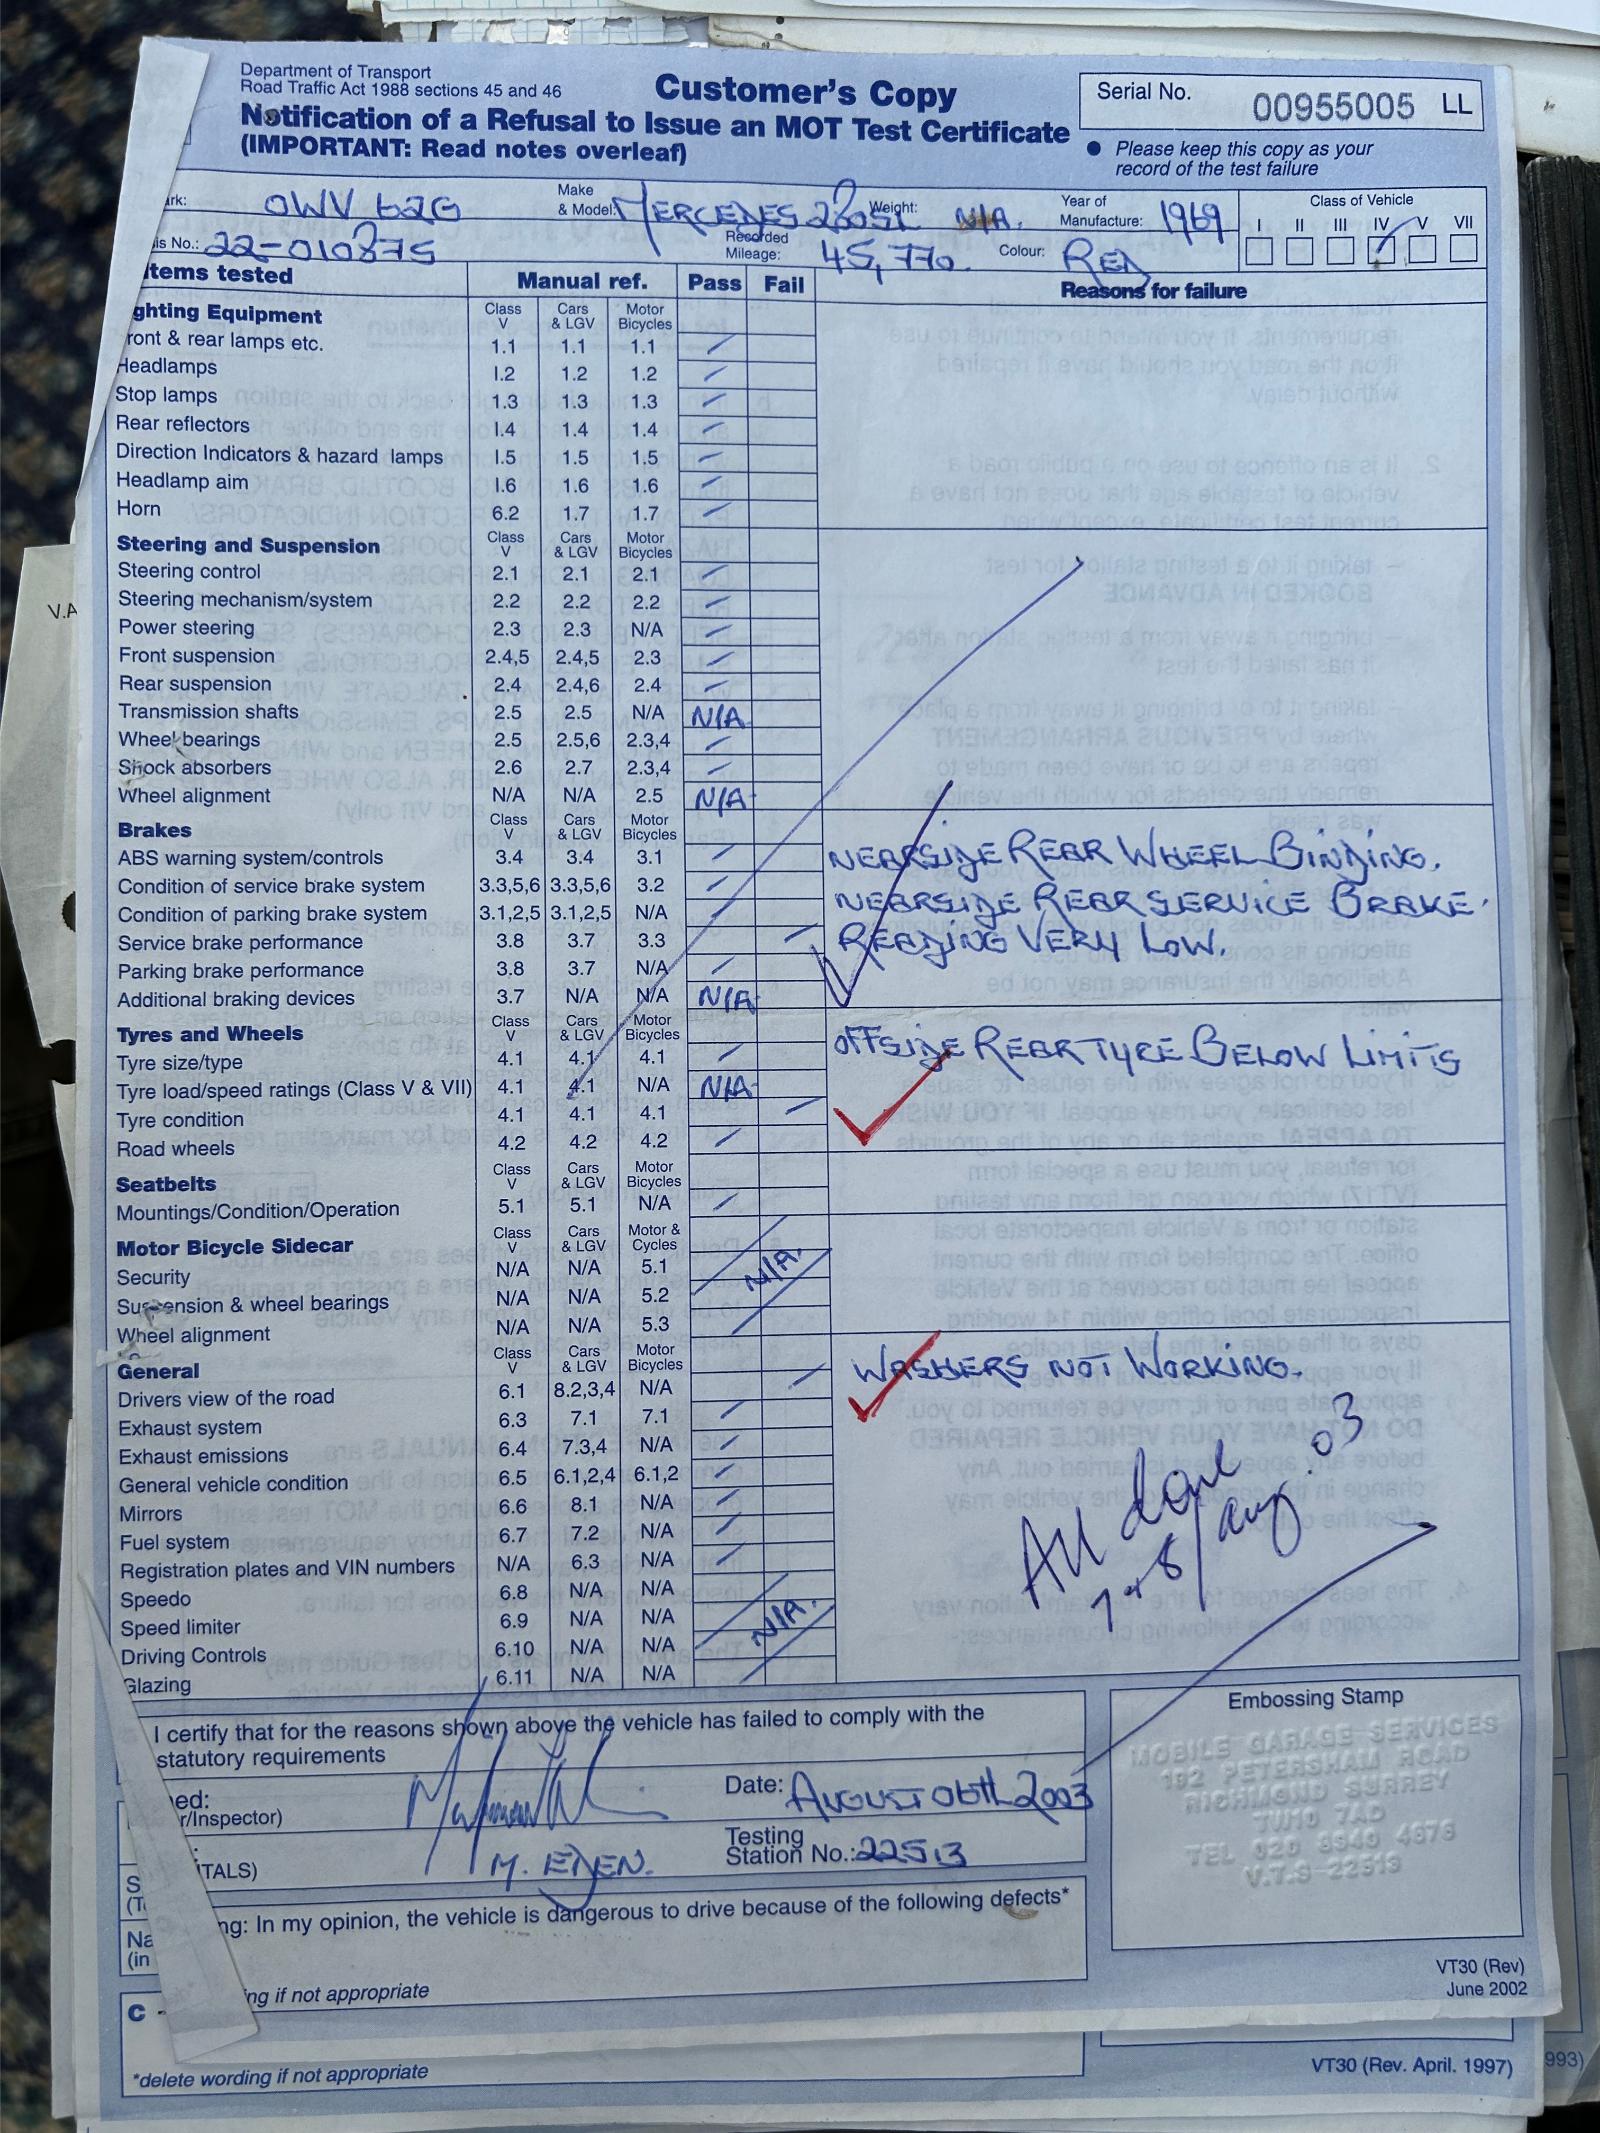 Department of Transport
Road Traffic Act 1988 sections 45 and 46
Customer's Copy
Notification of a Refusal to Issue an MOT Test Certificate
(IMPORTANT: Read notes overleaf)
Serial No. 00955005 LL
• Please keep this copy as your
record of the test failure
rk: OWV 62G
Make
& Model: MERCEDES 280SL
Weight: N/A.
Year of
Manufacture: 1969
Class of Vehicle
I II III IV V VII
is No.: 22-010875
Recorded
Mileage: 45,770.
Colour: RED
Items tested Manual ref. Pass Fail Reasons for failure
ghting Equipment Class V Cars & LGV Motor Bicycles
ront & rear lamps etc. 1.1 1.1 1.1
Headlamps 1.2 1.2 1.2
Stop lamps 1.3 1.3 1.3
Rear reflectors 1.4 1.4 1.4
Direction Indicators & hazard lamps 1.5 1.5 1.5
Headlamp aim 1.6 1.6 1.6
Horn 6.2 1.7 1.7
Steering and Suspension Class V Cars & LGV Motor Bicycles
Steering control 2.1 2.1 2.1
Steering mechanism/system 2.2 2.2 2.2
Power steering 2.3 2.3 N/A
Front suspension 2.4,5 2.4,5 2.3
Rear suspension 2.4 2.4,6 2.4
Transmission shafts 2.5 2.5 N/A N/A
Wheel bearings 2.5 2.5,6 2.3,4
Shock absorbers 2.6 2.7 2.3,4
Wheel alignment N/A N/A 2.5 N/A
Brakes Class V Cars & LGV Motor Bicycles
ABS warning system/controls 3.4 3.4 3.1 NEARSIDE REAR WHEEL BINDING.
Condition of service brake system 3.3,5,6 3.3,5,6 3.2
Condition of parking brake system 3.1,2,5 3.1,2,5 N/A NEARSIDE REAR SERVICE BRAKE
Service brake performance 3.8 3.7 3.3 READING VERY LOW.
Parking brake performance 3.8 3.7 N/A
Additional braking devices 3.7 N/A N/A N/A
Tyres and Wheels Class V Cars & LGV Motor Bicycles
Tyre size/type 4.1 4.1 4.1 OFFSIDE REAR TYRE BELOW LIMITS
Tyre load/speed ratings (Class V & VII) 4.1 4.1 N/A N/A
Tyre condition 4.1 4.1 4.1
Road wheels 4.2 4.2 4.2
Seatbelts Class V Cars & LGV Motor Bicycles
Mountings/Condition/Operation 5.1 5.1 N/A
Motor Bicycle Sidecar Class V Cars & LGV Motor & Cycles
Security N/A N/A 5.1 N/A.
Suspension & wheel bearings N/A N/A 5.2
Wheel alignment N/A N/A 5.3
General Class V Cars & LGV Motor Bicycles
Drivers view of the road 6.1 8.2,3,4 N/A WASHERS NOT WORKING.
Exhaust system 6.3 7.1 7.1
Exhaust emissions 6.4 7.3,4 N/A
General vehicle condition 6.5 6.1,2,4 6.1,2
Mirrors 6.6 8.1 N/A
Fuel system 6.7 7.2 N/A
Registration plates and VIN numbers N/A 6.3 N/A
Speedo 6.8 N/A N/A
Speed limiter 6.9 N/A N/A N/A.
Driving Controls 6.10 N/A N/A
Glazing 6.11 N/A N/A
All done
7+8/aug. 03
I certify that for the reasons shown above the vehicle has failed to comply with the
statutory requirements
ed:
r/Inspector)
Date: AUGUST 06th 2003
ITALS) M. EJEN.
Testing
Station No.: 22513
ng: In my opinion, the vehicle is dangerous to drive because of the following defects*
ng if not appropriate
Embossing Stamp
MOBILE GARAGE SERVICES
192 PETERSHAM ROAD
RICHMOND SURREY
TW10 7AD
TEL 020 8940 4676
V.T.S-22513
VT30 (Rev)
June 2002
S
Na
(in
C -
*delete wording if not appropriate
VT30 (Rev. April. 1997)
993)
V.A